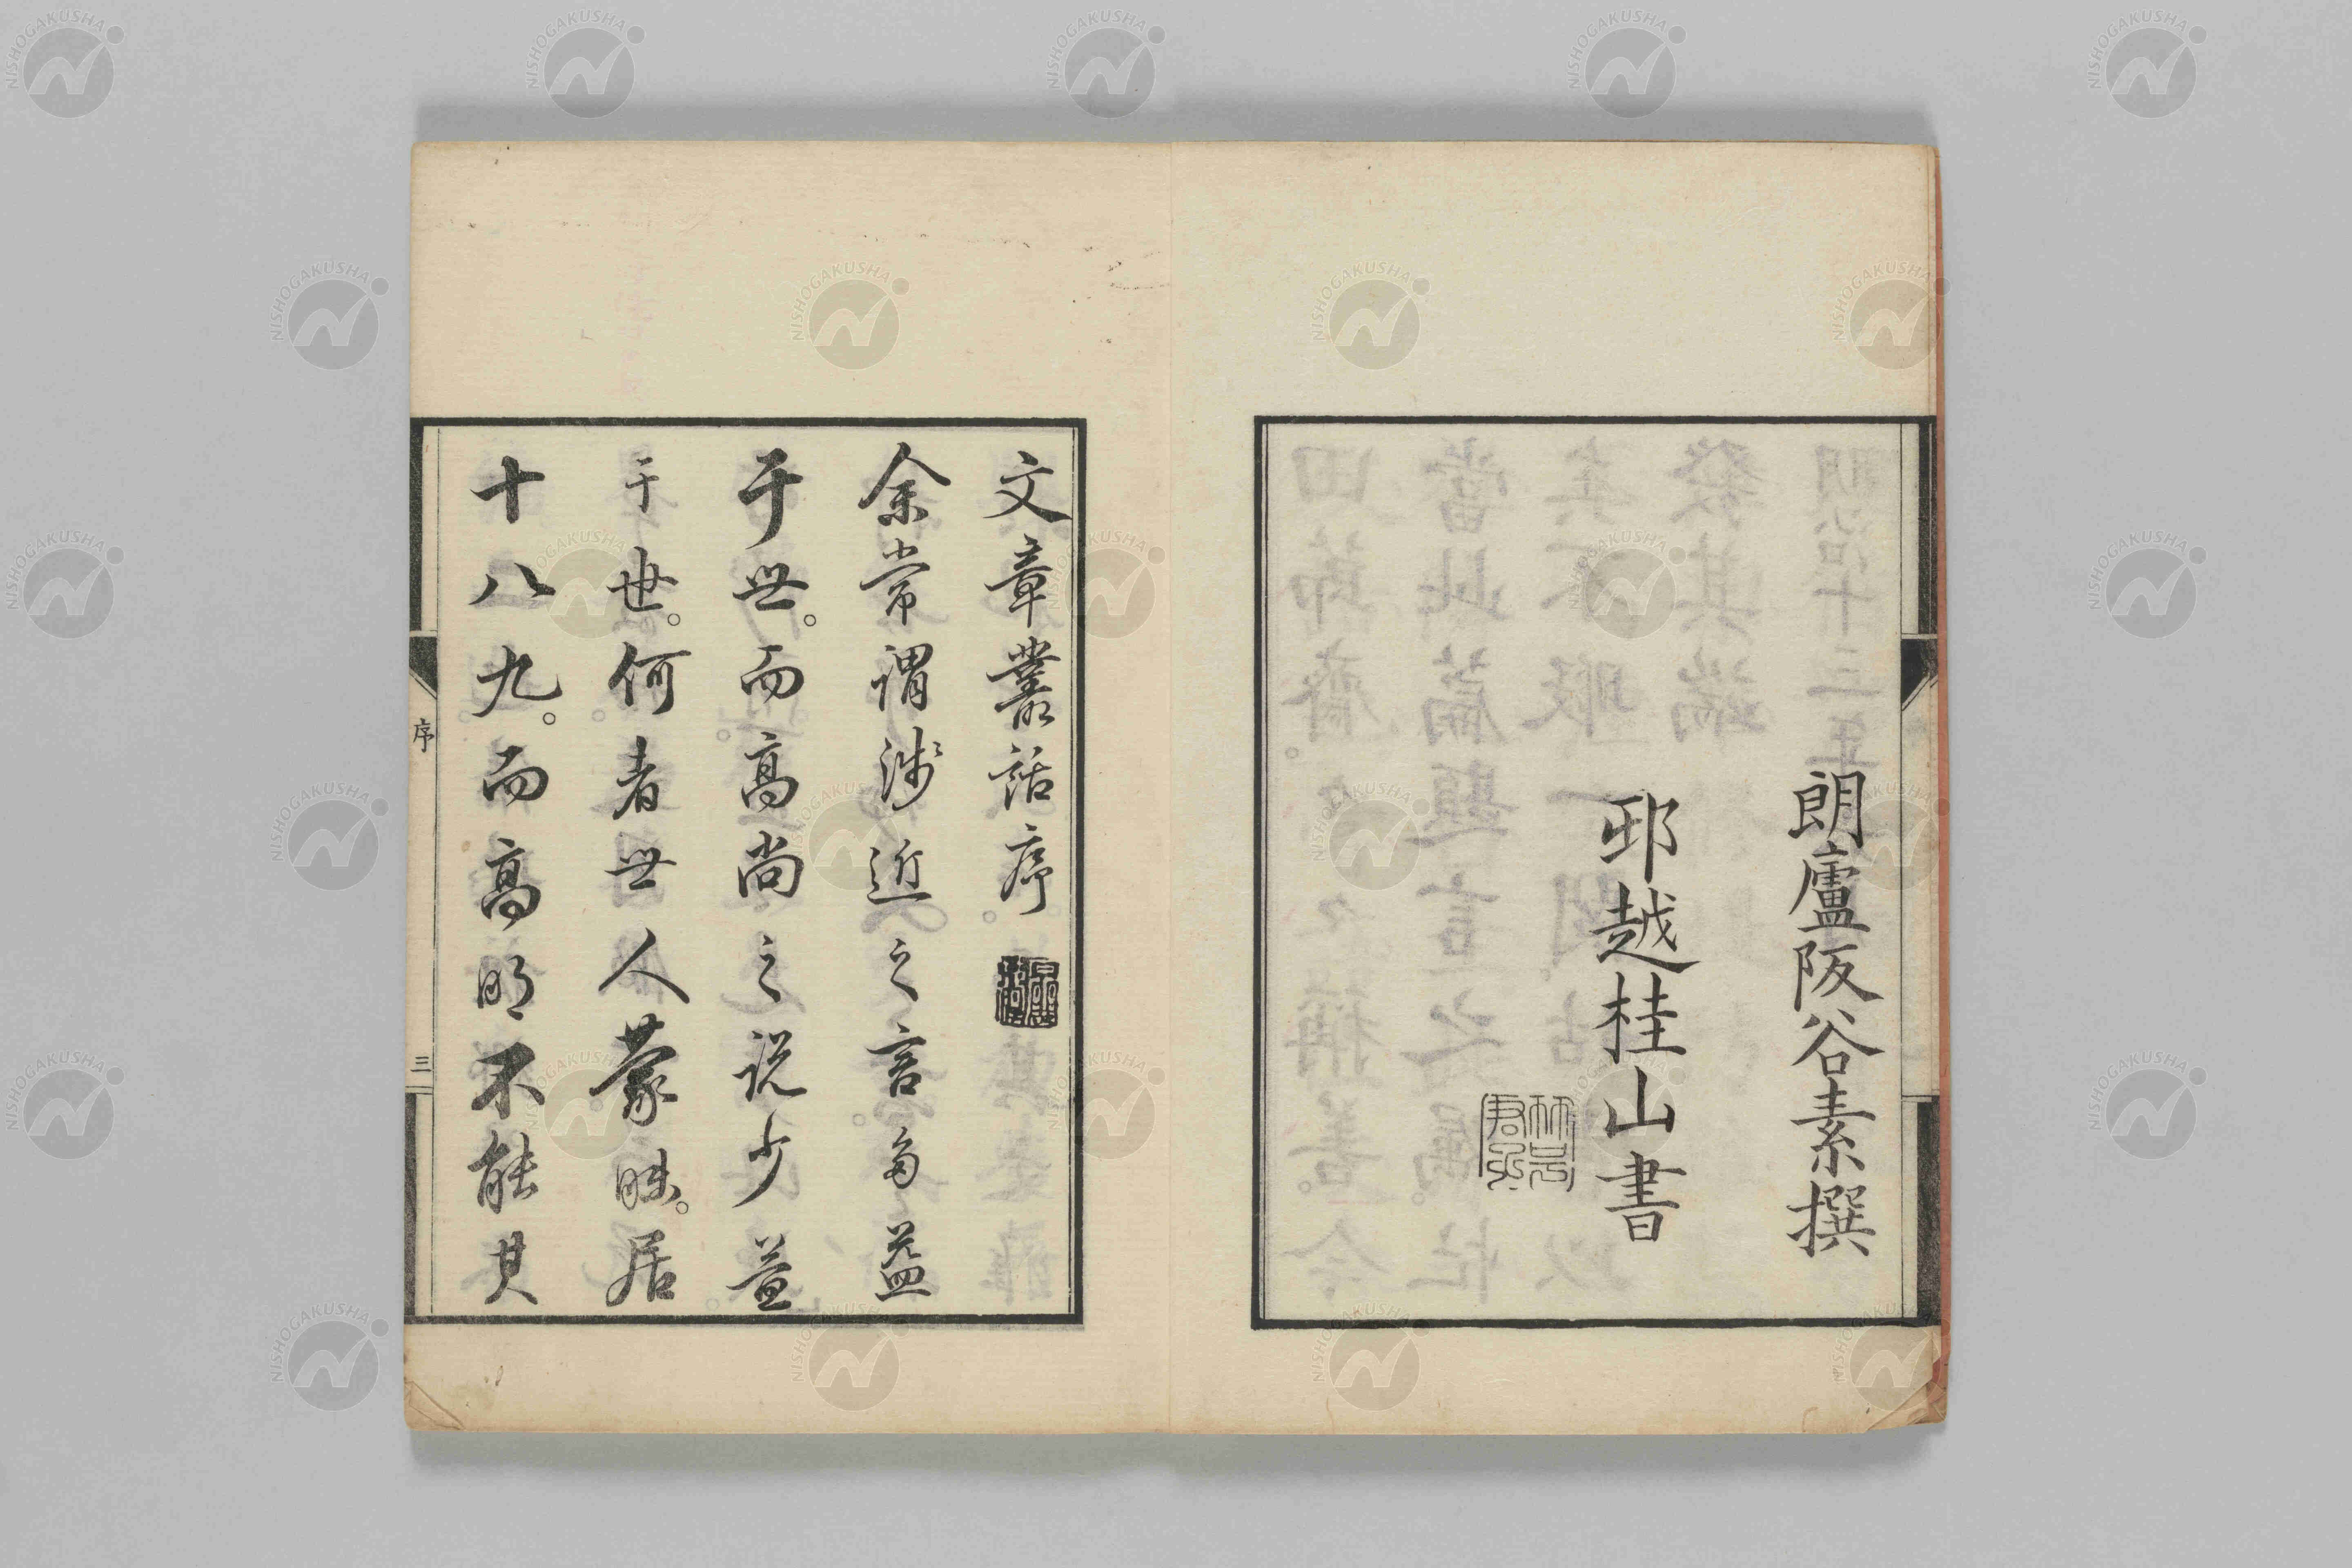 朗廬阪谷素撰
邨越桂山書
文章叢話序。
余常謂淺近之言多益
于世。而高尚之説少益
于世。何者世人蒙昧。居
十八九。而高明不能其
序
三
NISHOGAKUSHA